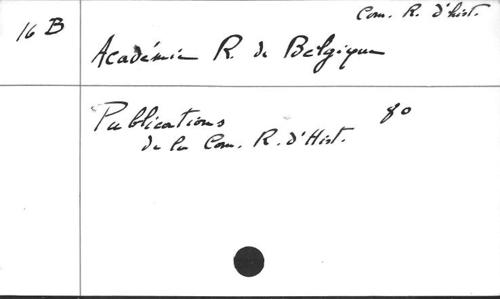 Com. R. d'hist.
16 B
Académie R. de Belgique
Publications 80
de la Com. R. d'Hist.